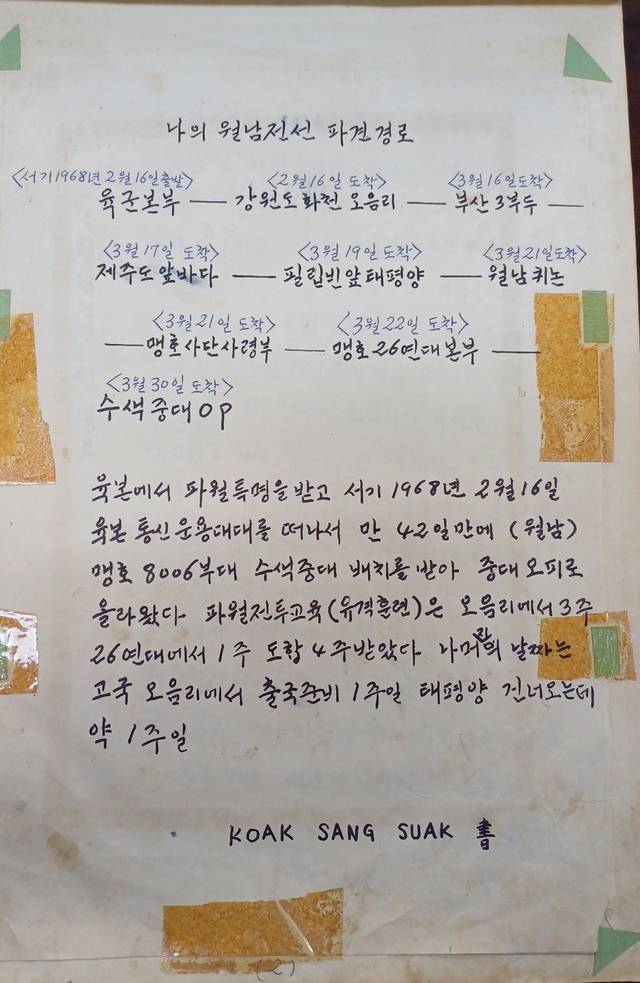 나의 월남전선 파견경로
<서기1968년 2월16일출발> <2월16일 도착> <3월16일도착>
육군본부 — 강원도화천 오음리 — 부산 3부두 —
<3월17일 도착> <3월 19일 도착> <3월21일도착>
제주도앞바다 — 필립빈앞태평양 — 월남퀴논
<3월21일 도착> <3월22일 도착>
— 맹호사단사령부 — 맹호26연대본부 —
<3월30일 도착>
수색중대OP
육본에서 파월특명을받고 서기 1968년 2월16일
육본통신운용대대를 떠나서 만 42일만에 (월남)
맹호 8006부대 수색중대 배치를받아 중대오피로
올라왔다 파월전투교육(유격훈련)은 오음리에서3주
26연대에서 1주 도합 4주받았다 나머지 날짜는
고국 오음리에서 출국준비 1주일 태평양 건너오는데
약 1주일
KOAK SANG SUAK 書
(2)